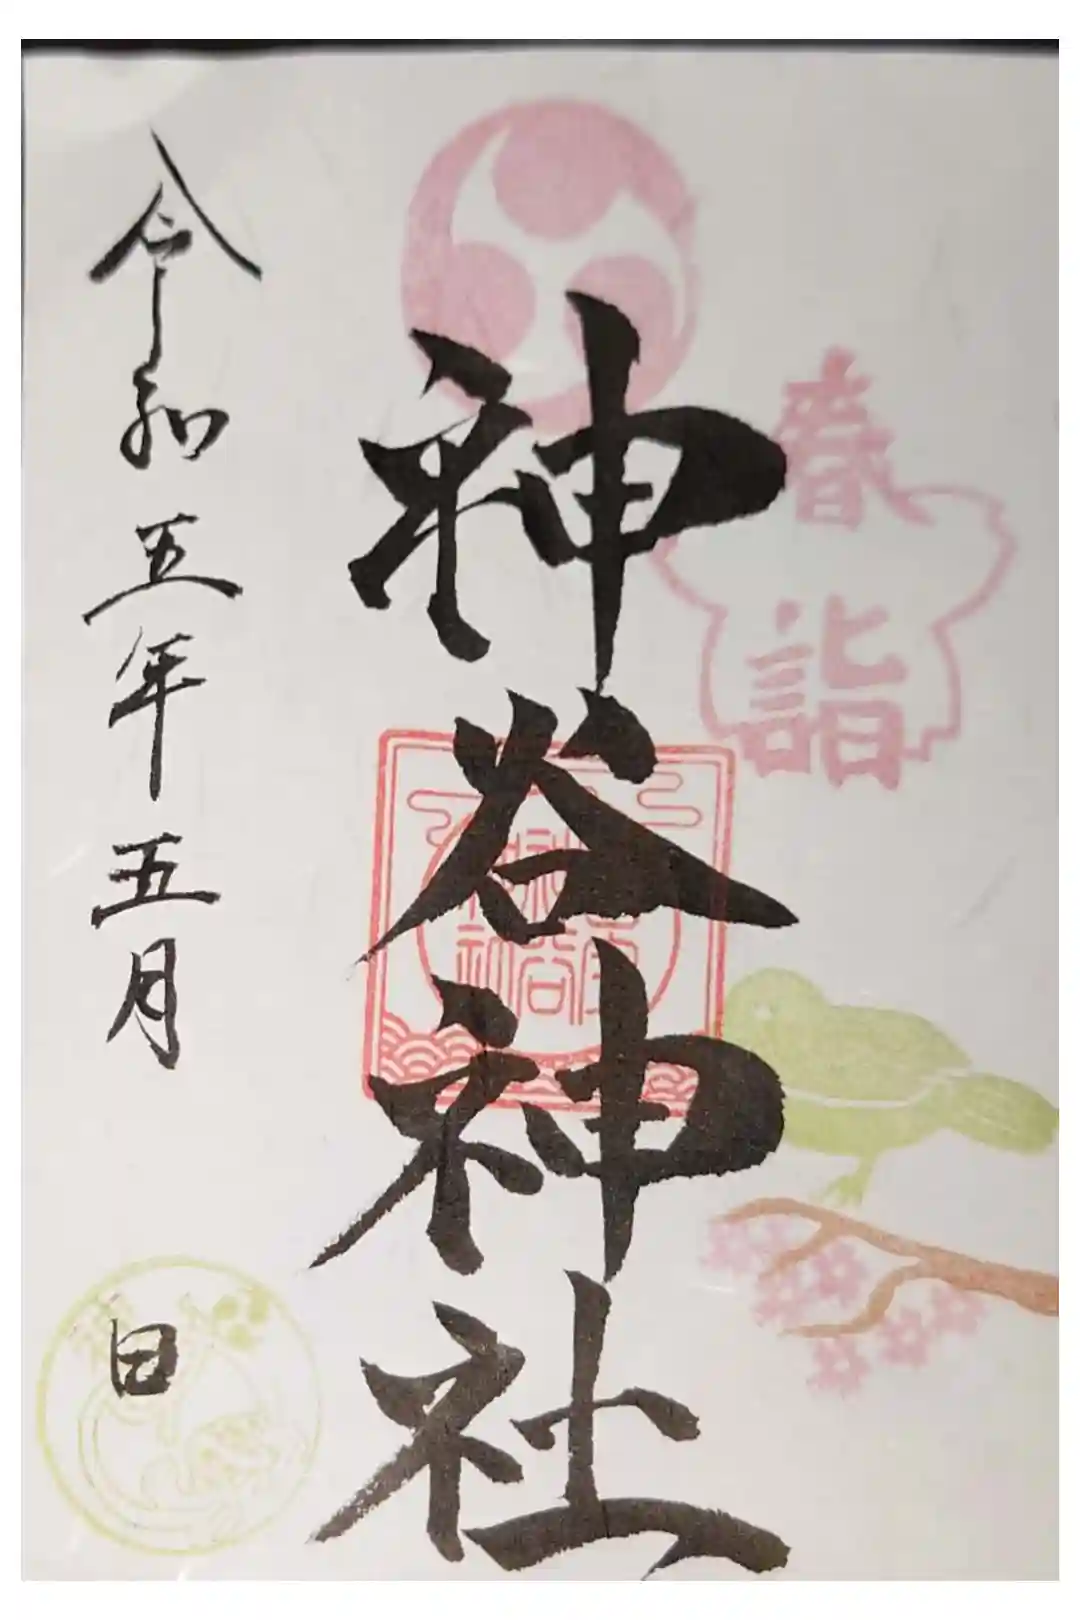 春詣
神谷神社
令和五年五月 日